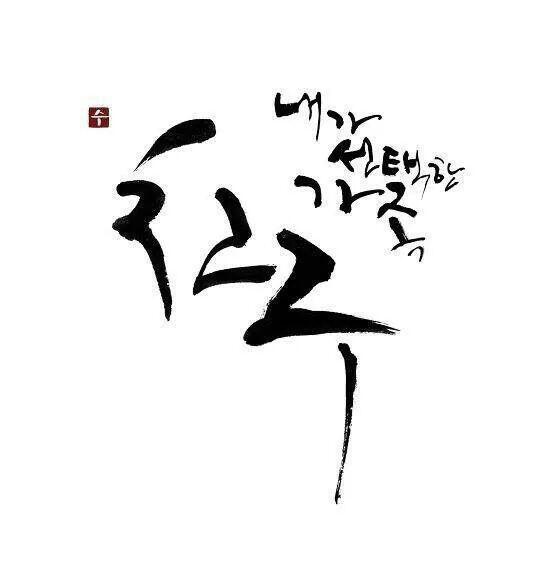 수
내가
선택한
가족
친구